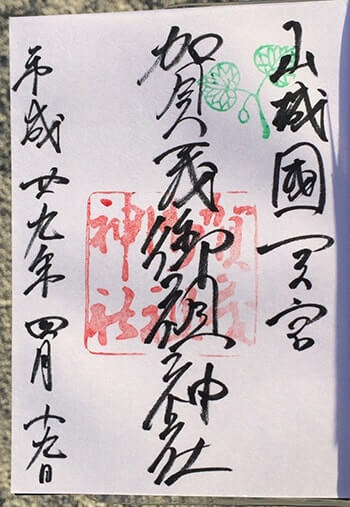 山城國一之宮
賀茂御祖神社
平成廿九年四月十九日
賀茂
御祖
神社